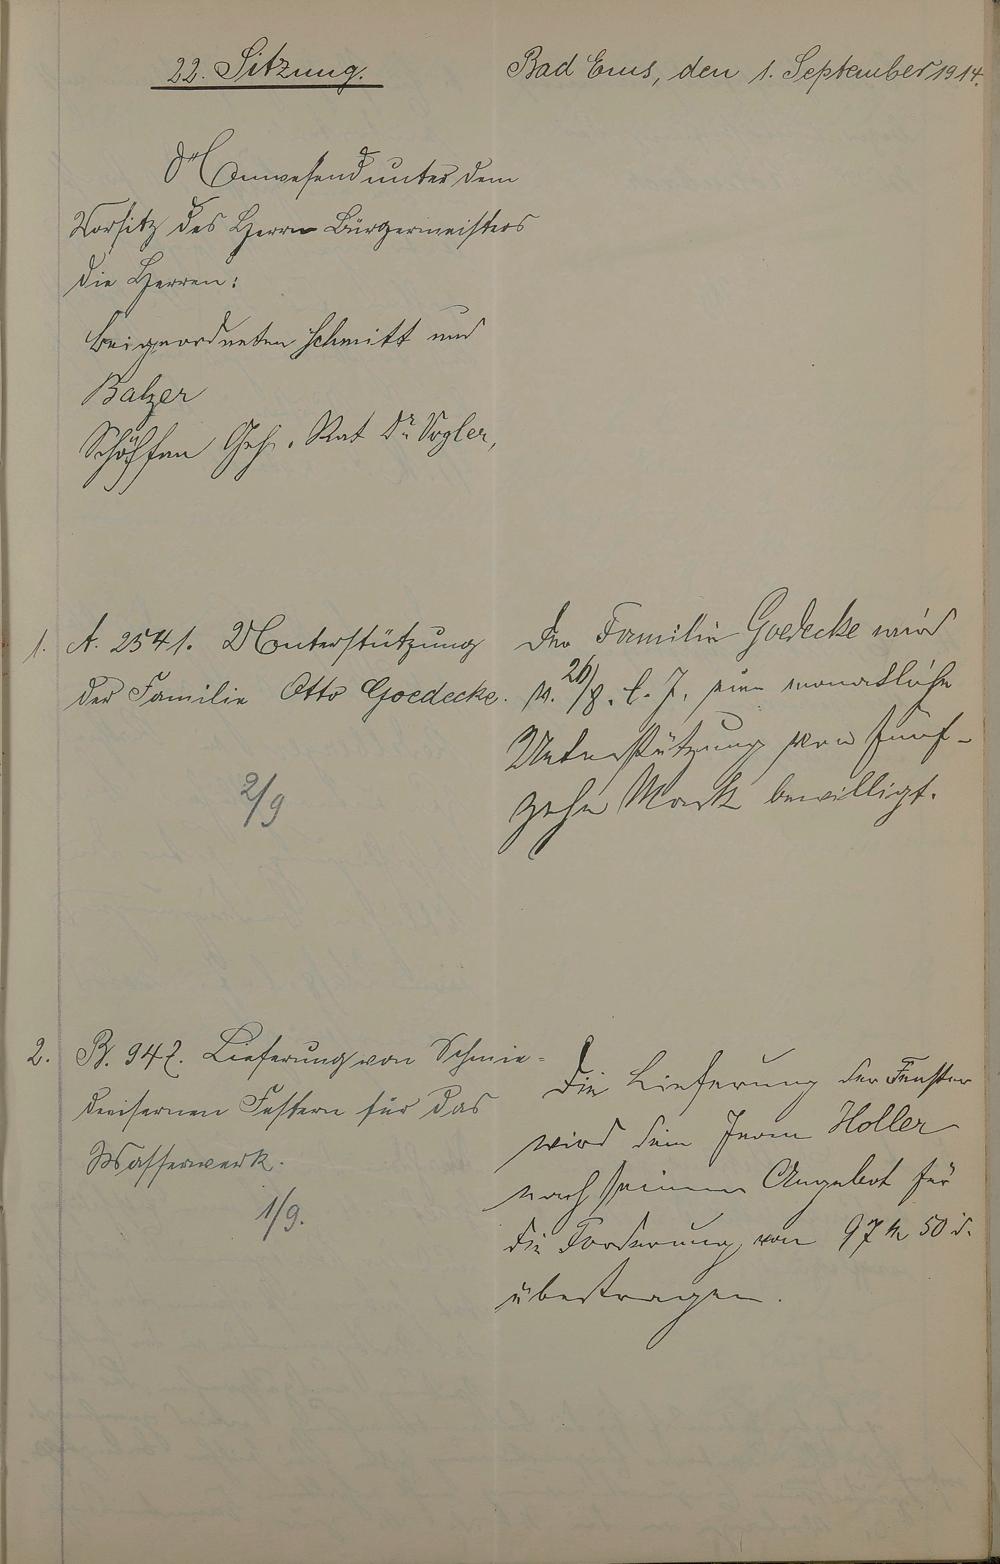 22. Sitzung.
Bad Ems, den 1. September 1914.
Anwesend unter dem
Vorsitz des Herrn Bürgermeisters
die Herren:
Beigeordneten Schmitt und
Balzer
Schöffen Geh. Rat Dr. Vogler,
1. A. 2541. Unterstützung
der Familie Otto Goedecke.
2/9
Der Familie Goedecke wird
v. 26/8. l. J. eine monatliche
Unterstützung von fünf-
zehn Mark bewilligt.
2. B. 947. Lieferung von Schmie-
deeisernen Festern für das
Wasserwerk.
1/9.
Die Lieferung der Fenster
wird dem Herrn Holler
nach seinem Angebot für
die Forderung von 97 M 50 d.
übertragen.